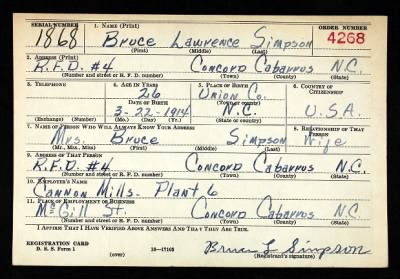 SERIAL NUMBER 1. NAME (Print) ORDER NUMBER
1868 Bruce Lawrence Simpson 4268
(First) (Middle) (Last)
2. ADDRESS (Print)
R.F.D. #4 Concord Cabarrus N.C.
(Number and street or R. F. D. number) (Town) (County) (State)
3. TELEPHONE 4. AGE IN YEARS 5. PLACE OF BIRTH 6. COUNTRY OF CITIZENSHIP
26 Union Co.
DATE OF BIRTH (Town or county)
3-22-1914 N.C. U.S.A.
(Exchange) (Number) (Mo.) (Day) (Yr.) (State or country)
7. NAME OF PERSON WHO WILL ALWAYS KNOW YOUR ADDRESS 8. RELATIONSHIP OF THAT PERSON
Mrs. Bruce Simpson Wife
(Mr., Mrs., Miss) (First) (Middle) (Last)
9. ADDRESS OF THAT PERSON
R.F.D. #4 Concord Cabarrus N.C.
(Number and street or R. F. D. number) (Town) (County) (State)
10. EMPLOYER'S NAME
Cannon Mills- Plant 6
11. PLACE OF EMPLOYMENT OR BUSINESS
McGill St. Concord Cabarrus N.C.
(Number and street or R. F. D. number) (Town) (County) (State)
I AFFIRM THAT I HAVE VERIFIED ABOVE ANSWERS AND THAT THEY ARE TRUE.
REGISTRATION CARD
D. S. S. Form 1 16—17105 Bruce L Simpson
(over) (Registrant's signature)